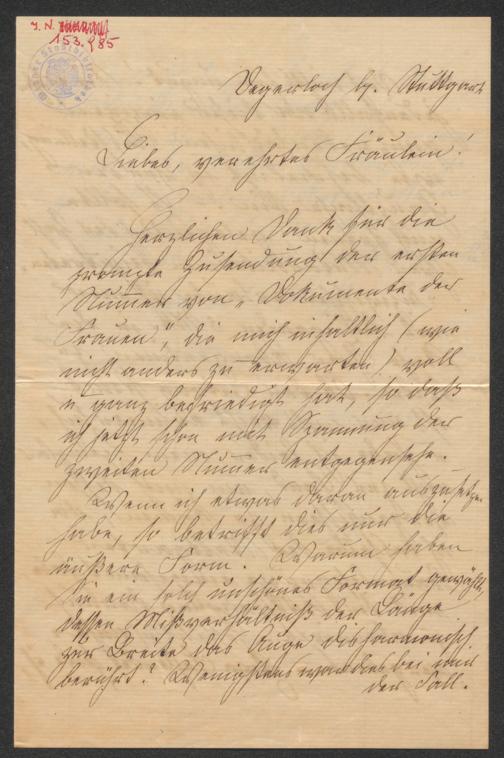 J. N.
153.985
Wiener Stadtbibliothek
Degerloch b/. Stuttgart
Liebes, verehrtes Fräulein!
Herzlichen Dank für die
prompte Zusendung der ersten
Nummer von „Dokumente der
Frauen", die mich inhaltlich (wie
nicht anders zu erwarten) voll
u ganz befriedigt hat, so daß
ich jetzt schon mit Spannung der
zweiten Nummer entgegensehe.
Wenn ich etwas daran auszusetzen
habe, so betrifft dies nur die
äußere Form. Warum haben
Sie ein solch unschönes Format gewählt,
dessen Mißverhältniß der Länge
zur Breite das Auge disharmonisch
berührt? Wenigstens war dies bei mir
der Fall.